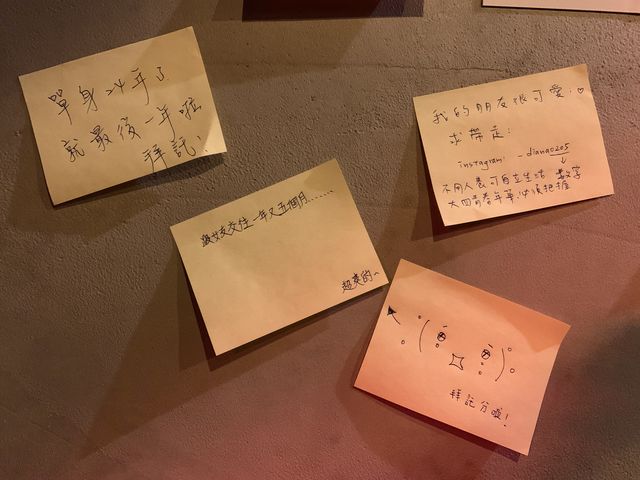 單身24年了
就最後一年啦
拜託!
我的朋友很可愛:♡
求帶走:
instagram: -diana0205
不用人養可自立生活 數字
大四青春年華,必須把握
跟女友交往一年又五個月......
超爽的~
拜託分啦!